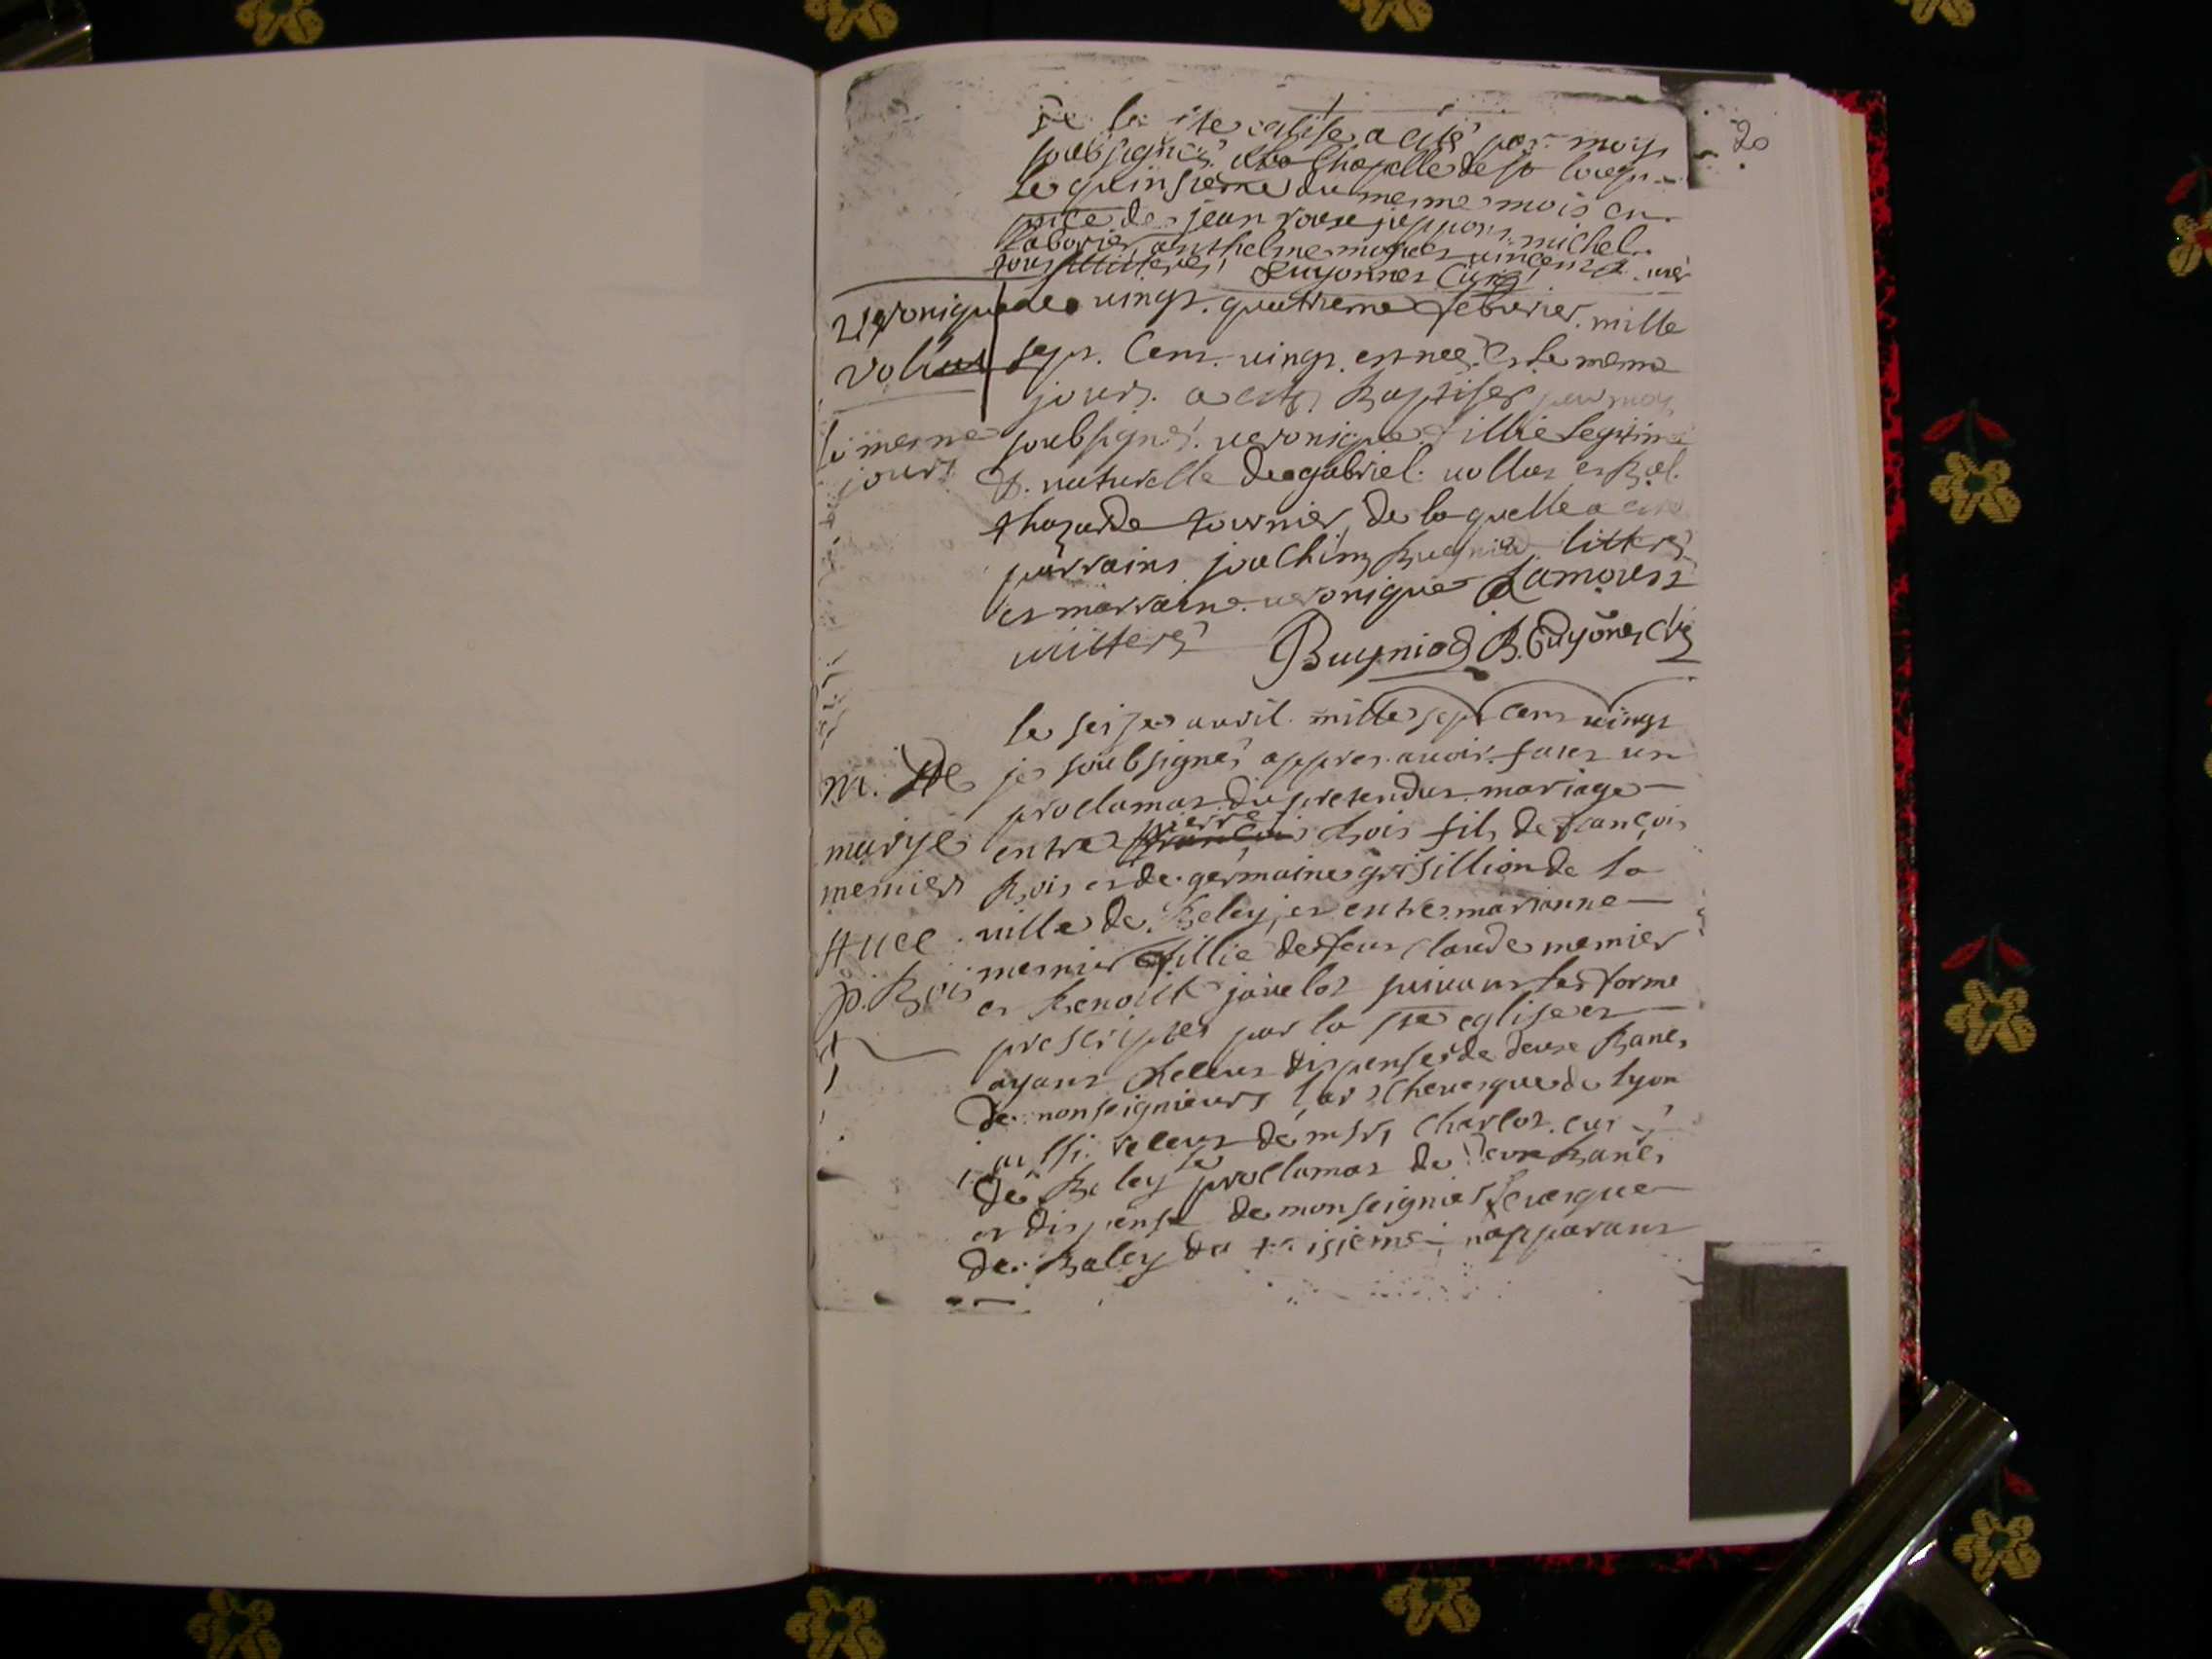 20
de la ste eglise a esté par moy
soubsigné Chapelle de st
le quinsieme du mesme mois en
pnce de jean michel
anthelme vincent
tous illiteres Guyonnet Curé
Veronique
Vollut
le mesme
jours
le vingt quatrieme febvrier mille
sept Cent vingt est nee et le meme
jours a esté Baptisee par moy
soubsigné veronique fillie legitime
& naturelle de gabriel vollut et Bal
thazarde tournier de laquelle a esté
parrains joachim Bugniod litteré
et marraine veronique Lamourt
illiteré Bugniod B. Guyonet Cré
m. de
marye
mernier
avec
p. Bois
le seise avril mille sept cent vingt
je soubsigné appres avoir fait un
proclamat du pretendut mariage
entre pierre Bois fils de François
Bois et de germaine grisillion de la
ville de Beley, et entre marianne
mernier fillie de feut Claude mernier
et Benoite javelot suivant les forme
prescriptes par la ste eglise et
ayant Receut dispense de deux Banc
de monseignieurs l'archevesque de lyon
aussi receut de msr Charlot curé
de Beley le proclamat de deux Banc
et dispense de monseignieur levesque
de Baley du troisieme napparant